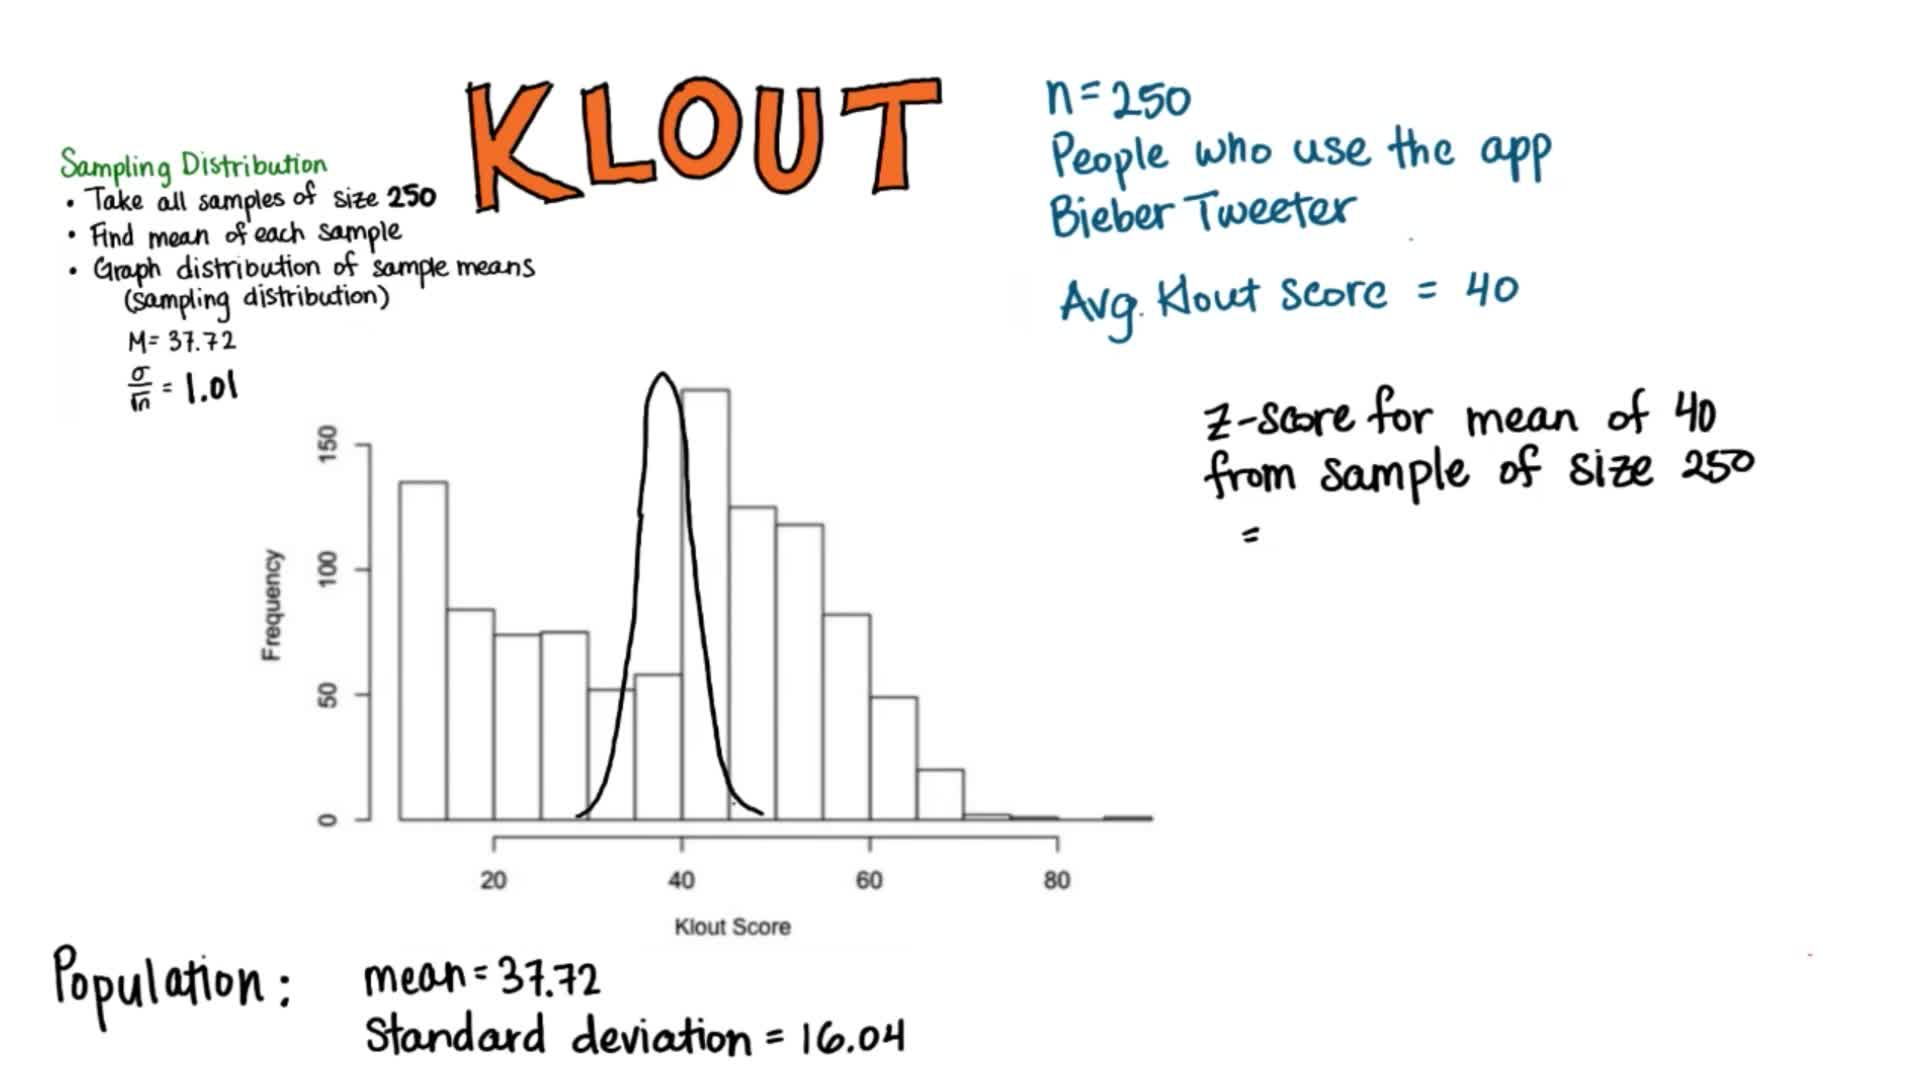 KLOUT
Sampling Distribution
• Take all samples of size 250
• Find mean of each sample
• Graph distribution of sample means
(sampling distribution)
M = 37.72
σ/√n = 1.01
n = 250
People who use the app
Bieber Tweeter
Avg. Klout score = 40
z-score for mean of 40
from sample of size 250
=
Frequency
150
100
50
0
20 40 60 80
Klout Score
Population: mean = 37.72
Standard deviation = 16.04